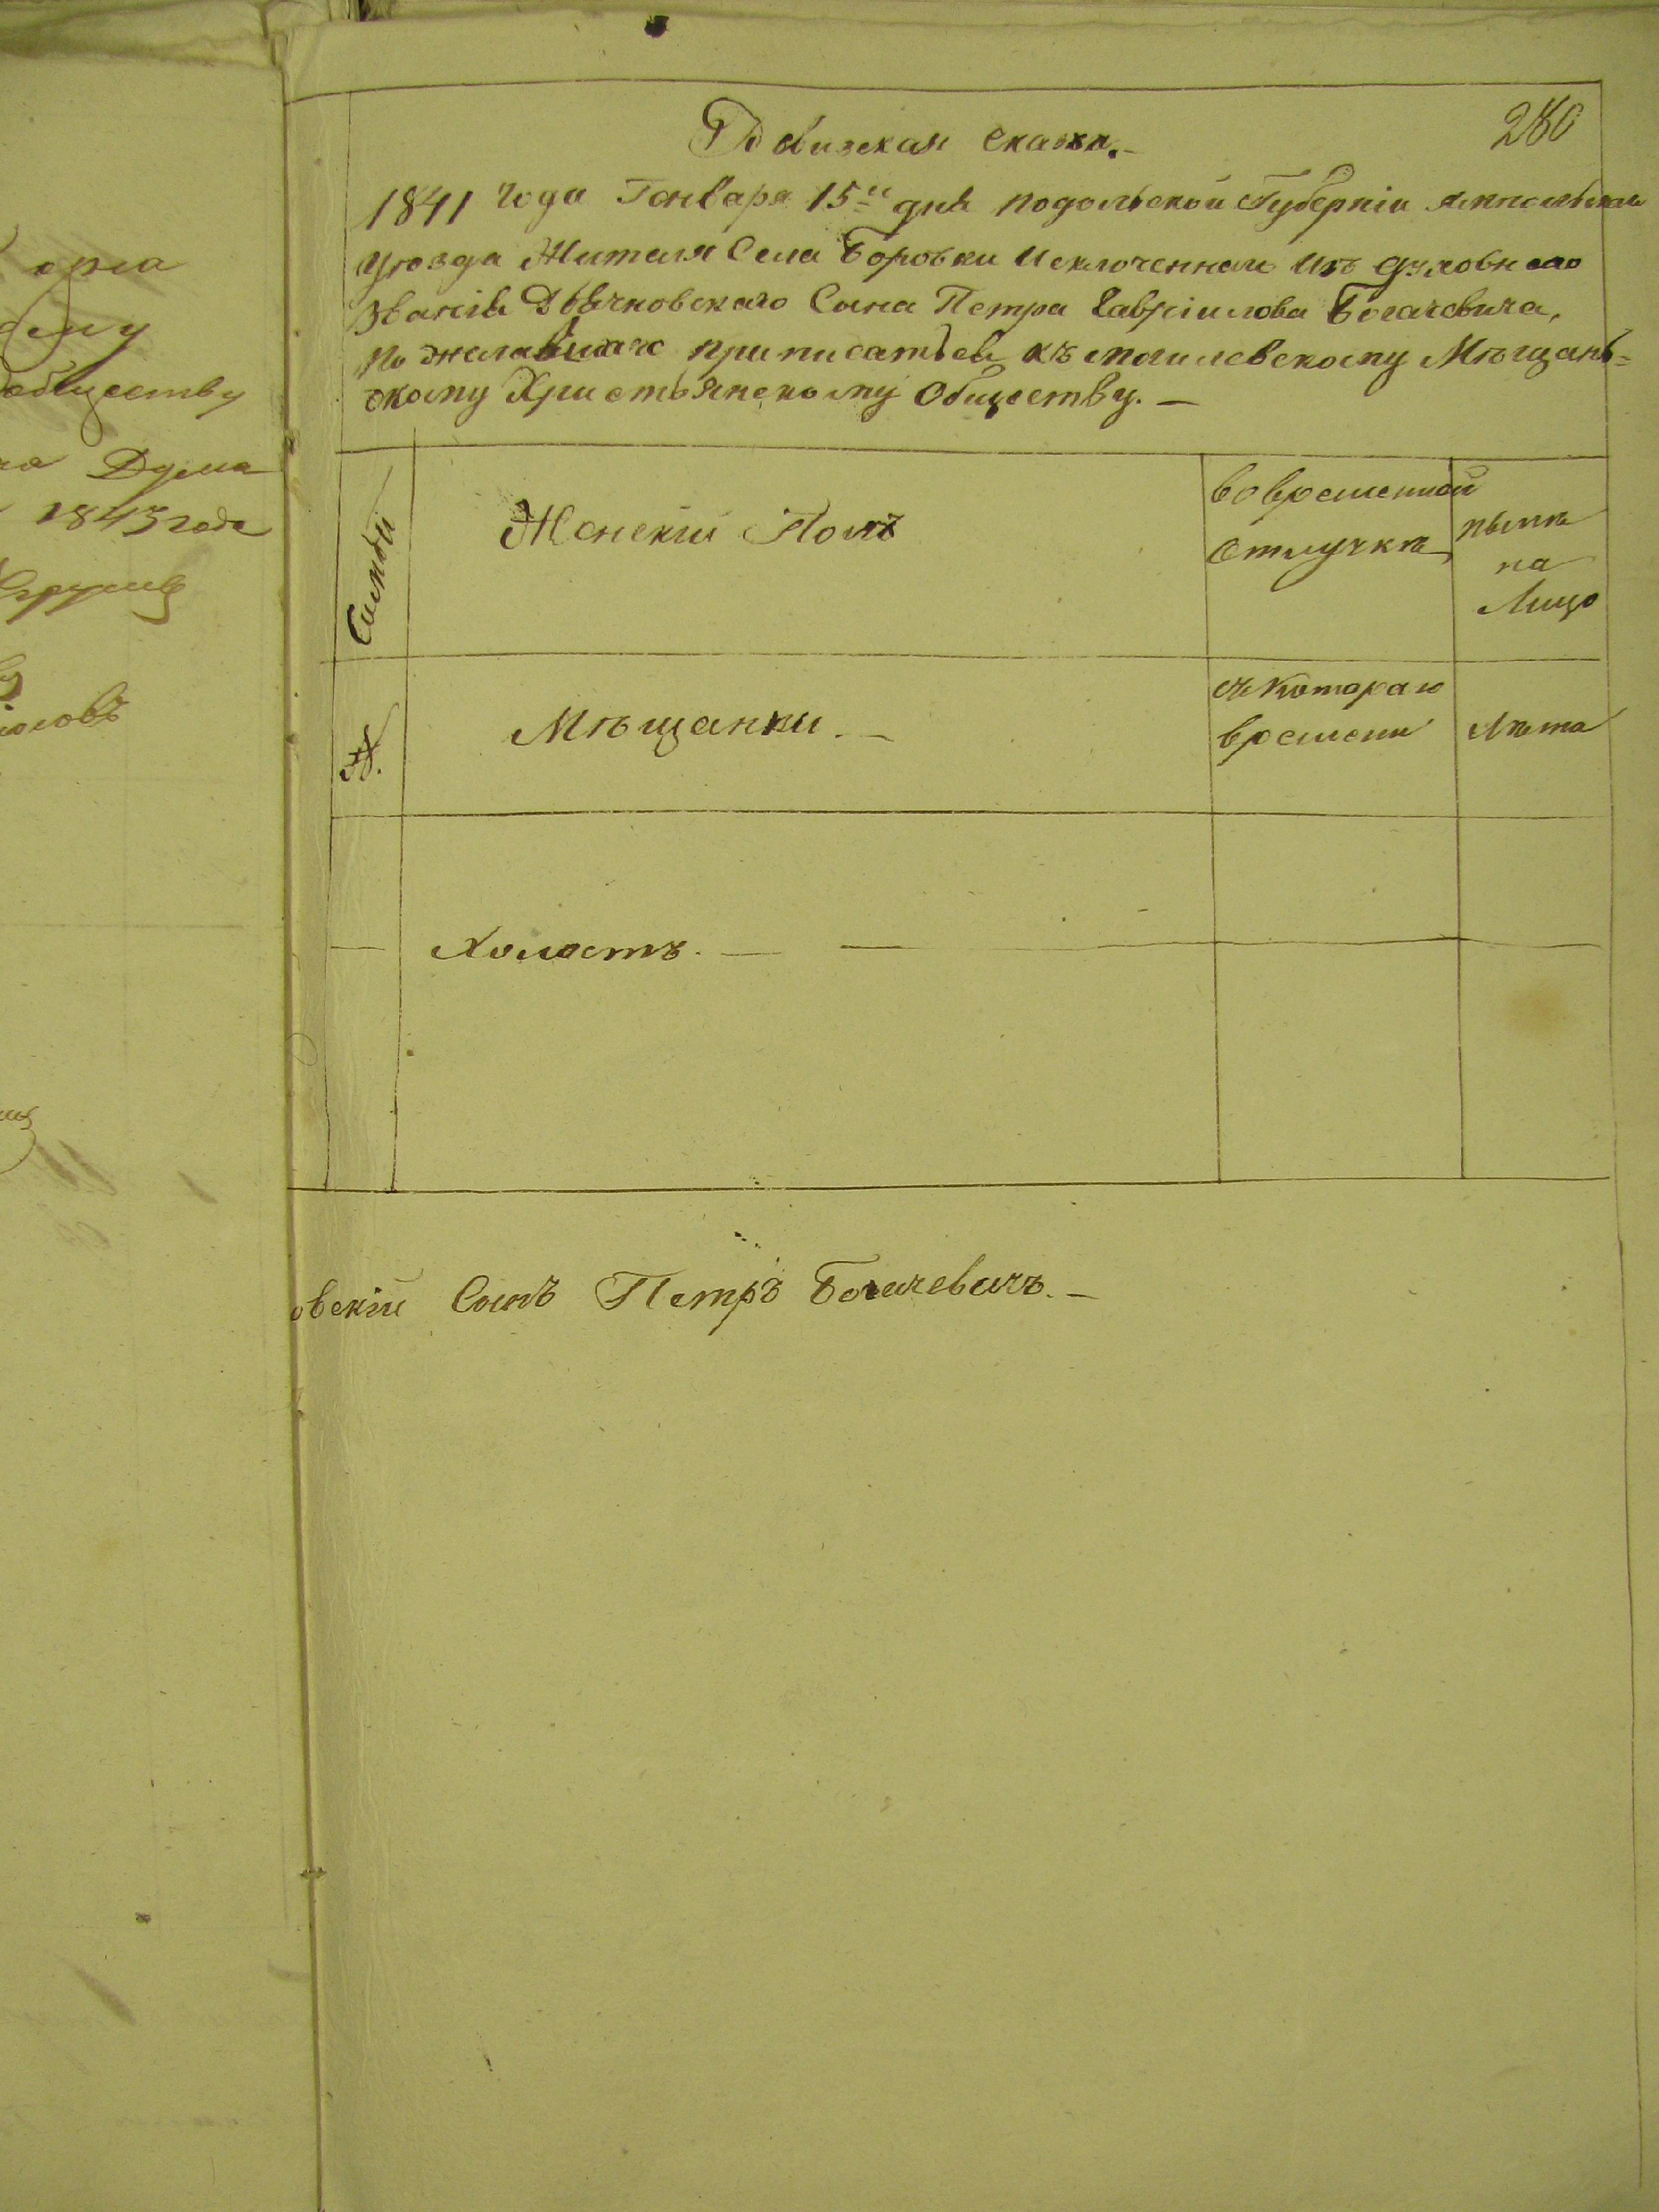 280
Ревизская сказка.-
1841 года Генваря 15го дня подольской Губерніи ямпольскаго
уюзда Жителя Села Боровки Исключеннаго Изъ духовнаго
Званія Дьячковскаго Сына Петра Гавріилова Богачевича,
пожелавшаго приписатьса къ могилевскому Мѣщань=
скому Христьянскому Обществу. —
Семьи
Женскій Полъ
вовременной
Отлучкѣ
нынѣ
на
Лицо
№.
Мѣщанки. —
съ Котораго
времени
Лѣта
— Холостъ. — —
овскій Сынъ Петръ Богачевичъ. —
обществу
Дума
1843 года